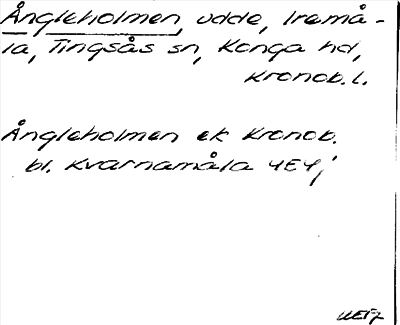 Ångleholmen, udde, Iremå-
la, Tingsås sn, Konga hd,
Kronob. l.
Ångleholmen ek Kronob.
bl. Kvarnamåla 4E4j